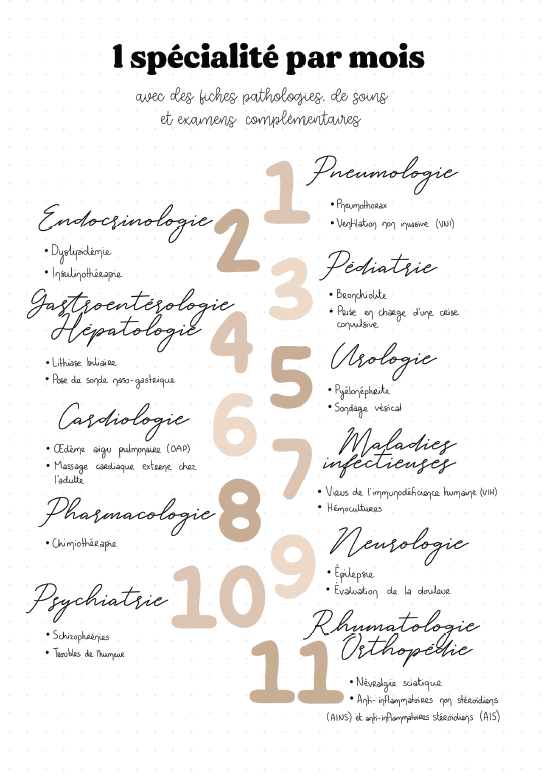 1 spécialité par mois
avec des fiches pathologies, de soins
et examens complémentaires
1
Pneumologie
• Pneumothorax
• Ventilation non invasive (VNI)
2
Endocrinologie
• Dyslipidémie
• Insulinothérapie
3
Pédiatrie
• Bronchiolite
• Prise en charge d'une crise
convulsive
4
Gastroentérologie
Hépatologie
• Lithiase biliaire
• Pose de sonde naso-gastrique
5
Urologie
• Pyélonéphrite
• Sondage vésical
6
Cardiologie
• Œdème aigu pulmonaire (OAP)
• Massage cardiaque externe chez
l'adulte
7
Maladies
infectieuses
• Virus de l'immunodéficience humaine (VIH)
• Hémocultures
8
Pharmacologie
• Chimiothérapie
9
Neurologie
• Épilepsie
• Évaluation de la douleur
10
Psychiatrie
• Schizophrénies
• Troubles de l'humeur
11
Rhumatologie
Orthopédie
• Névralgie sciatique
• Anti-inflammatoires non stéroïdiens
(AINS) et anti-inflammatoires stéroïdiens (AIS)